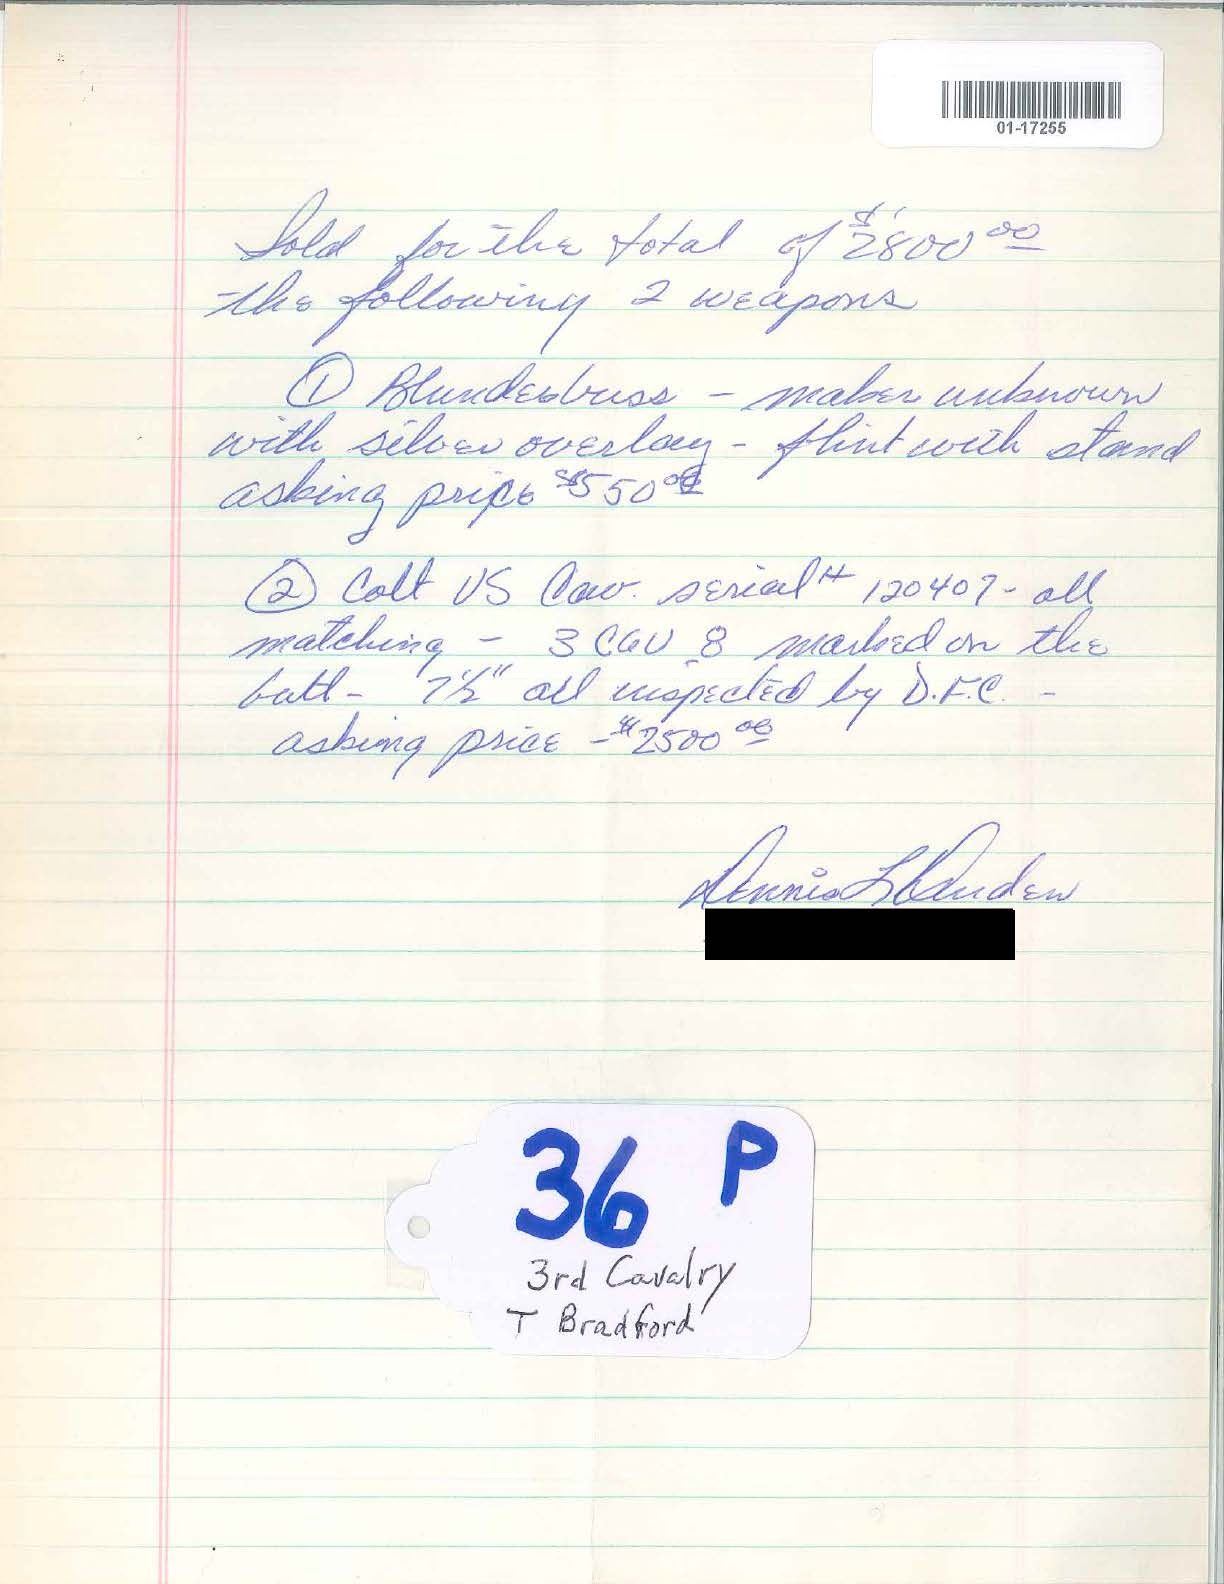 01-17255
Sold for the total of $2800.00
the following 2 weapons
① Blunderbuss - maker unknown
with silver overlay - flint with stand
asking price $550.00
② Colt US Cav. serial # 120407 - all
matching - 3 CAV 8 marked on the
butt - 7½" all inspected by D.F.C. -
asking price - $2500.00
Dennis
36 P
3rd Cavalry
T Bradford